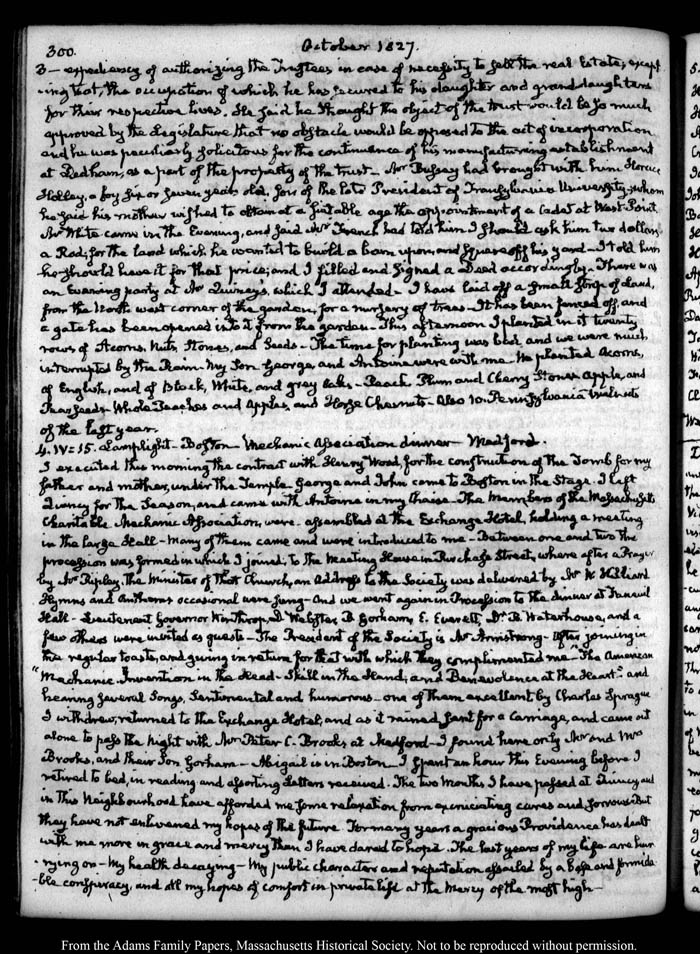 300.
October 1827.
3 — expediency of authorizing the Trustees in case of necessity to sell the real Estate; except
ing that, the occupation of which he has secured to his daughter and granddaughters
for their respective lives. He said he thought the object of the trust would be so much
approved by the Legislature that no obstacle would be opposed to the act of incorporation
and he was peculiarly solicitous for the continuance of his manufacturing establishment
at Dedham, as a part of the property of the trust — Mr Bussey had brought with him Horace
Holley, a boy six or seven years old, son of the late President of Transylvania University, whom
he said his mother wished to obtain at a suitable age the appointment of a Cadet at West-Point.
Mr White came in the Evening, and said Mr French had told him I should ask him two dollars
a Rod, for the land which he wanted to build a barn upon and square off his yard — I told him
he should have it for that price; and I filled and signed a Deed accordingly. There was
an evening party at Mr Quincy's, which I attended — I have laid off a small strip of Land,
from the North west corner of the garden, for a nursery of trees — It has been fenced off, and
a gate has been opened into it from the garden — This afternoon I planted in it twenty
rows of Acorns, Nuts, Stones, and Seeds — The time for planting was bad, and we were much
interrupted by the Rain — My Son George, and Antoine were with me — We planted Acorns,
of English, and of Black, White, and grey Oaks — Peach, Plum and Cherry Stones Apple, and
Pear seeds — Whole Peaches and Apples, and Horse Chesnuts — Also 10 Pennsylvania Walnuts
of the last year.
4. IV: 15. Lamplight — Boston — Mechanic Association dinner — Medford.
I executed this morning the contract with Henry Wood, for the construction of the Tomb for my
father and mother, under the Temple. George and John came to Boston in the Stage. I left
Quincy for the Season, and came with Antoine in my Chaise — The Members of the Massachusetts
Charitable Mechanic Association, were assembled at the Exchange Hotel, holding a meeting
in the large Hall — Many of them came and were introduced to me — Between one and two the
procession was formed in which I joined, to the Meeting House in Purchase Street, where after a Prayer
by Mr Ripley, the Minister of that Church, an Address to the Society was delivered by Mr W. Hilliard
Hymns and Anthems occasional were sung — And we went again in Procession to the dinner at Faneuil
Hall — Lieutenant Governor Winthrop, D Webster, B Gorham, E. Everett, Dr B. Waterhouse, and a
few others were invited as guests — The President of the Society is Mr Armstrong — After joining in
the regular toasts, and giving in return for that with which they complimented me "The American
"Mechanic — Invention in the Head — Skill in the Hand; and Benevolence at the Heart": and
hearing several Songs, Sentimental and humorous — one of them excellent by Charles Sprague
I withdrew, returned to the Exchange Hotel, and as it rained, sent for a Carriage, and came out
alone to pass the night with Mr Peter C. Brooks, at Medford — I found here only Mr and Mrs
Brooks, and their Son Gorham — Abigail is in Boston — I spent an hour this Evening before I
retired to bed, in reading and assorting Letters received. The two Months I have passed at Quincy and
in this Neighbourhood have afforded me some relaxation from excruciating cares and sorrows — But
they have not enlivened my hopes of the future. For many years a gracious Providence has dealt
with me more in grace and mercy than I have dared to hope. The last years of my life are hur
rying on — My health decaying — My public character and reputation assailed by a base and formida
ble conspiracy, and all my hopes of comfort in private life at the Mercy of the most high —
From the Adams Family Papers, Massachusetts Historical Society. Not to be reproduced without permission.